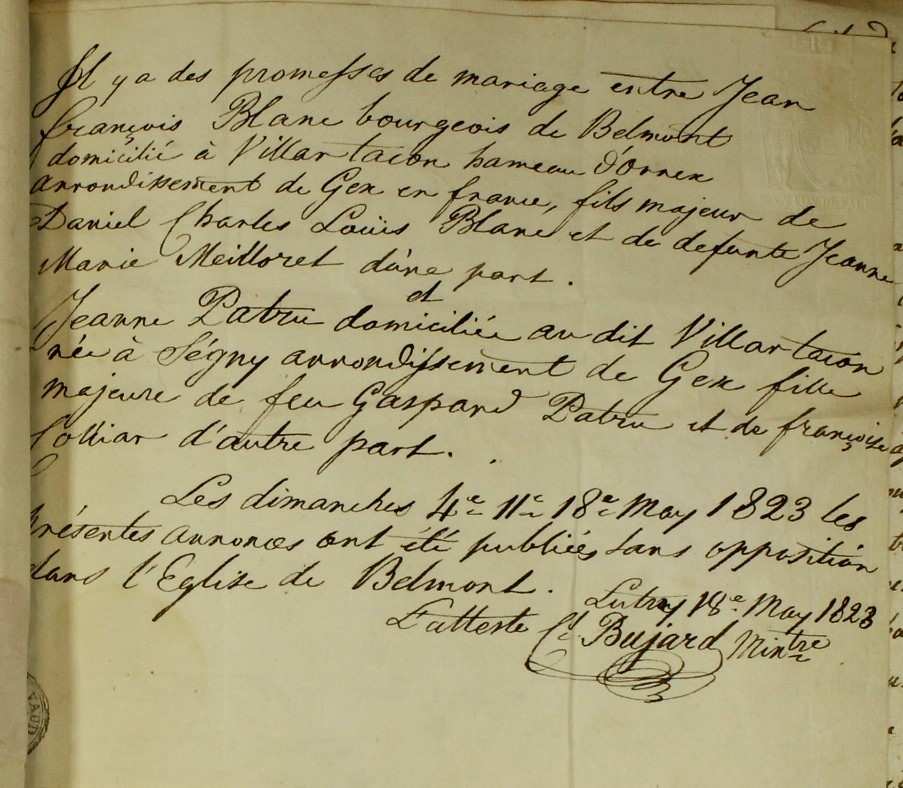 Il y a des promesses de mariage entre Jean
françois Blanc bourgeois de Belmont
domicilié à Villartacon hameau d'Ornex
arrondissement de Gex en france, fils majeur de
Daniel Charles Loüis Blanc et de defunte Jeanne
Marie Meilloret d'une part.
et
Jeanne Patru domiciliée au dit Villartacon
née à Ségny arrondissement de Gex fille
majeure de feu Gaspard Patru et de françoise
Colliar d'autre part.
Les dimanches 4e 11e 18e May 1823 les
présentes annonces ont été publiées sans opposition
dans l'Eglise de Belmont.
Lutry 18e May 1823
L'atteste Cd Bujard Mintre
VAUD